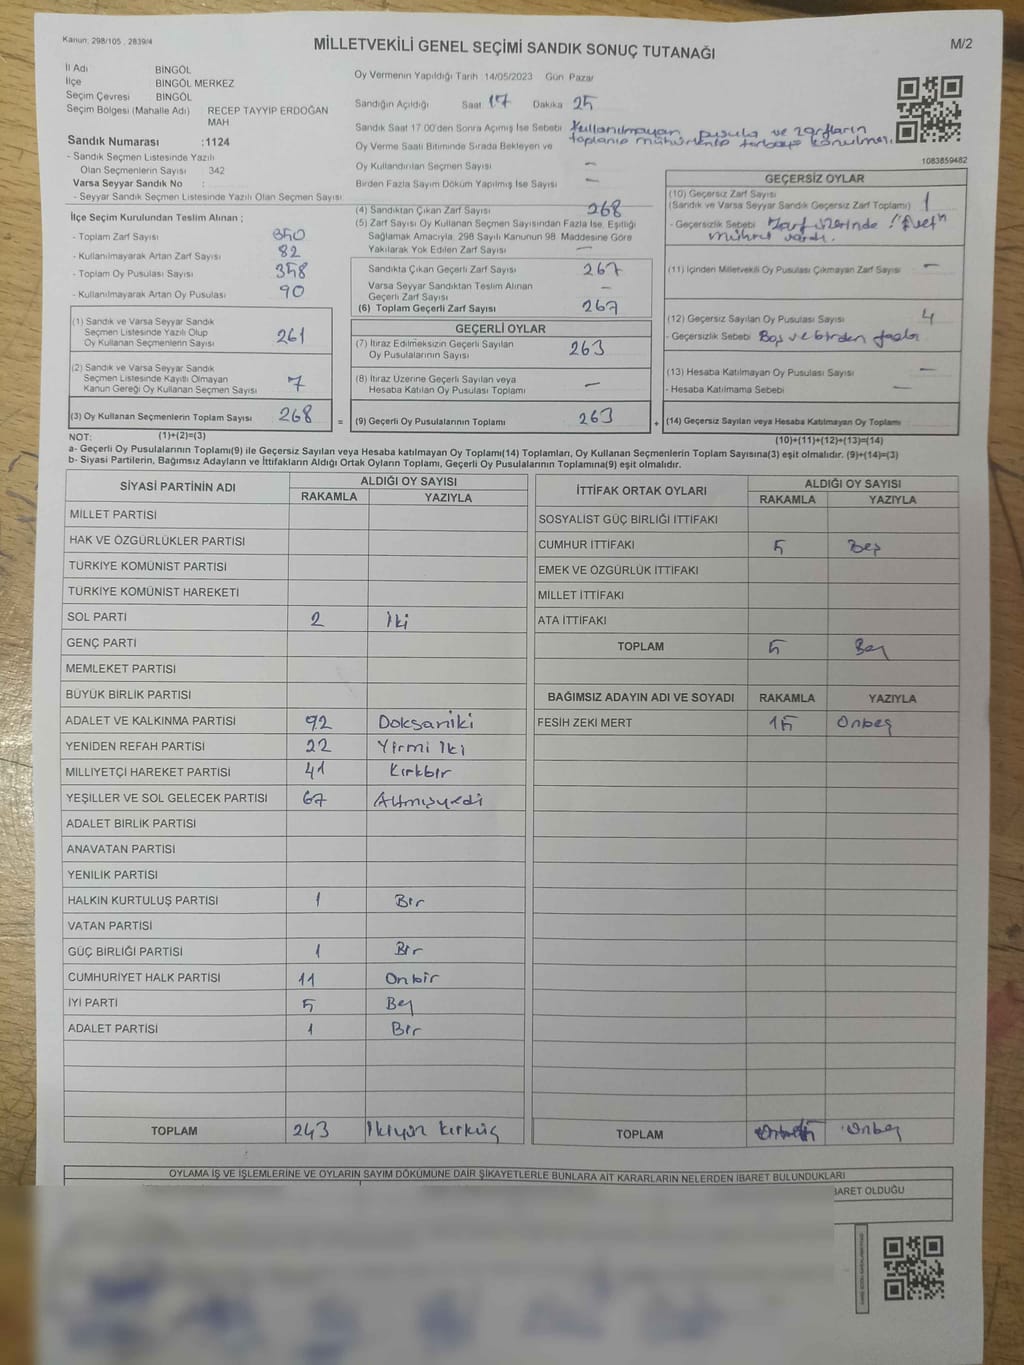 Kanun: 298/105 , 2839/4
MİLLETVEKİLİ GENEL SEÇİMİ SANDIK SONUÇ TUTANAĞI
M/2
İl Adı BİNGÖL
İlçe BİNGÖL MERKEZ
Seçim Çevresi BİNGÖL
Seçim Bölgesi (Mahalle Adı) RECEP TAYYİP ERDOĞAN
MAH
Sandık Numarası :1124
- Sandık Seçmen Listesinde Yazılı
Olan Seçmenlerin Sayısı 342
Varsa Seyyar Sandık No :
- Seyyar Sandık Seçmen Listesinde Yazılı Olan Seçmen Sayısı
Oy Vermenin Yapıldığı Tarih 14/05/2023 Gün Pazar
Sandığın Açıldığı Saat 17 Dakika 25
Sandık Saat 17:00'den Sonra Açılmış İse Sebebi Kullanılmayan pusula ve zarfların
toplanıp mühürlenip torbaya konulması.
Oy Verme Saati Bitiminde Sırada Bekleyen ve
Oy Kullandırılan Seçmen Sayısı —
Birden Fazla Sayım Döküm Yapılmış İse Sayısı —
1083859482
İlçe Seçim Kurulundan Teslim Alınan ;
- Toplam Zarf Sayısı 350
- Kullanılmayarak Artan Zarf Sayısı 82
- Toplam Oy Pusulası Sayısı 358
- Kullanılmayarak Artan Oy Pusulası 90
(1) Sandık ve Varsa Seyyar Sandık
Seçmen Listesinde Yazılı Olup
Oy Kullanan Seçmenlerin Sayısı 261
(2) Sandık ve Varsa Seyyar Sandık
Seçmen Listesinde Kayıtlı Olmayan
Kanun Gereği Oy Kullanan Seçmen Sayısı 7
(3) Oy Kullanan Seçmenlerin Toplam Sayısı 268 =
(4) Sandıktan Çıkan Zarf Sayısı 268
(5) Zarf Sayısı Oy Kullanan Seçmen Sayısından Fazla İse, Eşitliği
Sağlamak Amacıyla, 298 Sayılı Kanunun 98. Maddesine Göre
Yakılarak Yok Edilen Zarf Sayısı —
Sandıkta Çıkan Geçerli Zarf Sayısı 267
Varsa Seyyar Sandıktan Teslim Alınan
Geçerli Zarf Sayısı —
(6) Toplam Geçerli Zarf Sayısı 267
GEÇERLİ OYLAR
(7) İtiraz Edilmeksizin Geçerli Sayılan
Oy Pusulalarının Sayısı 263
(8) İtiraz Üzerine Geçerli Sayılan veya
Hesaba Katılan Oy Pusulası Toplamı —
(9) Geçerli Oy Pusulalarının Toplamı 263 +
GEÇERSİZ OYLAR
(10) Geçersiz Zarf Sayısı
(Sandık ve Varsa Seyyar Sandık Geçersiz Zarf Toplamı) 1
- Geçersizlik Sebebi Zarf üzerinde "Evet"
mührü vardı.
(11) İçinden Milletvekili Oy Pusulası Çıkmayan Zarf Sayısı —
(12) Geçersiz Sayılan Oy Pusulası Sayısı 4
- Geçersizlik Sebebi Boş ve birden fazla
(13) Hesaba Katılmayan Oy Pusulası Sayısı —
- Hesaba Katılmama Sebebi —
(14) Geçersiz Sayılan veya Hesaba Katılmayan Oy Toplamı
NOT: (1)+(2)=(3)
(10)+(11)+(12)+(13)=(14)
a- Geçerli Oy Pusulalarının Toplamı(9) ile Geçersiz Sayılan veya Hesaba katılmayan Oy Toplamı(14) Toplamları, Oy Kullanan Seçmenlerin Toplam Sayısına(3) eşit olmalıdır. (9)+(14)=(3)
b- Siyasi Partilerin, Bağımsız Adayların ve İttifakların Aldığı Ortak Oyların Toplamı, Geçerli Oy Pusulalarının Toplamına(9) eşit olmalıdır.
SİYASİ PARTİNİN ADI ALDIĞI OY SAYISI
RAKAMLA YAZIYLA
MİLLET PARTİSİ
HAK VE ÖZGÜRLÜKLER PARTİSİ
TÜRKİYE KOMÜNİST PARTİSİ
TÜRKİYE KOMÜNİST HAREKETİ
SOL PARTİ 2 İki
GENÇ PARTİ
MEMLEKET PARTİSİ
BÜYÜK BİRLİK PARTİSİ
ADALET VE KALKINMA PARTİSİ 92 Doksaniki
YENİDEN REFAH PARTİSİ 22 Yirmi iki
MİLLİYETÇİ HAREKET PARTİSİ 41 Kırkbir
YEŞİLLER VE SOL GELECEK PARTİSİ 67 Altmışyedi
ADALET BİRLİK PARTİSİ
ANAVATAN PARTİSİ
YENİLİK PARTİSİ
HALKIN KURTULUŞ PARTİSİ 1 Bir
VATAN PARTİSİ
GÜÇ BİRLİĞİ PARTİSİ 1 Bir
CUMHURİYET HALK PARTİSİ 11 Onbir
İYİ PARTİ 5 Beş
ADALET PARTİSİ 1 Bir
TOPLAM 243 İkiyüz kırküç
İTTİFAK ORTAK OYLARI ALDIĞI OY SAYISI
RAKAMLA YAZIYLA
SOSYALİST GÜÇ BİRLİĞİ İTTİFAKI
CUMHUR İTTİFAKI 5 Beş
EMEK VE ÖZGÜRLÜK İTTİFAKI
MİLLET İTTİFAKI
ATA İTTİFAKI
TOPLAM 5 Beş
BAĞIMSIZ ADAYIN ADI VE SOYADI RAKAMLA YAZIYLA
FESİH ZEKİ MERT 15 Onbeş
TOPLAM Onbeş
OYLAMA İŞ VE İŞLEMLERİNE VE OYLARIN SAYIM DÖKÜMÜNE DAİR ŞİKAYETLERLE BUNLARA AİT KARARLARIN NELERDEN İBARET BULUNDUKLARI
BARET OLDUĞU